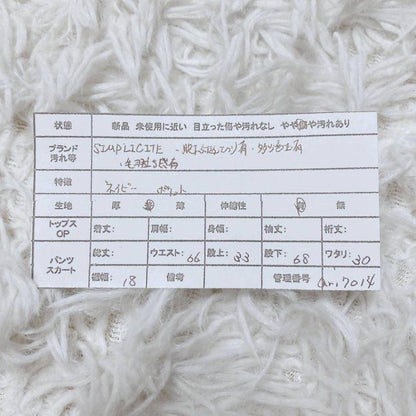 状態 新品 未使用に近い 目立った傷や汚れなし やや傷や汚れあり
ブランド 汚れ等 SIMPLICITE ・股下にほつれ有・少り色土有
・毛羽立ち感有
特徴 ネイビー ポケット
生地 厚 普 薄 伸縮性 有 無
トップス OP 着丈: 肩幅: 身幅: 袖丈: 裄丈:
パンツ スカート 総丈: ウエスト: 66 股上: 33 股下: 68 ワタリ: 30
裾幅: 18 備考 管理番号 17014